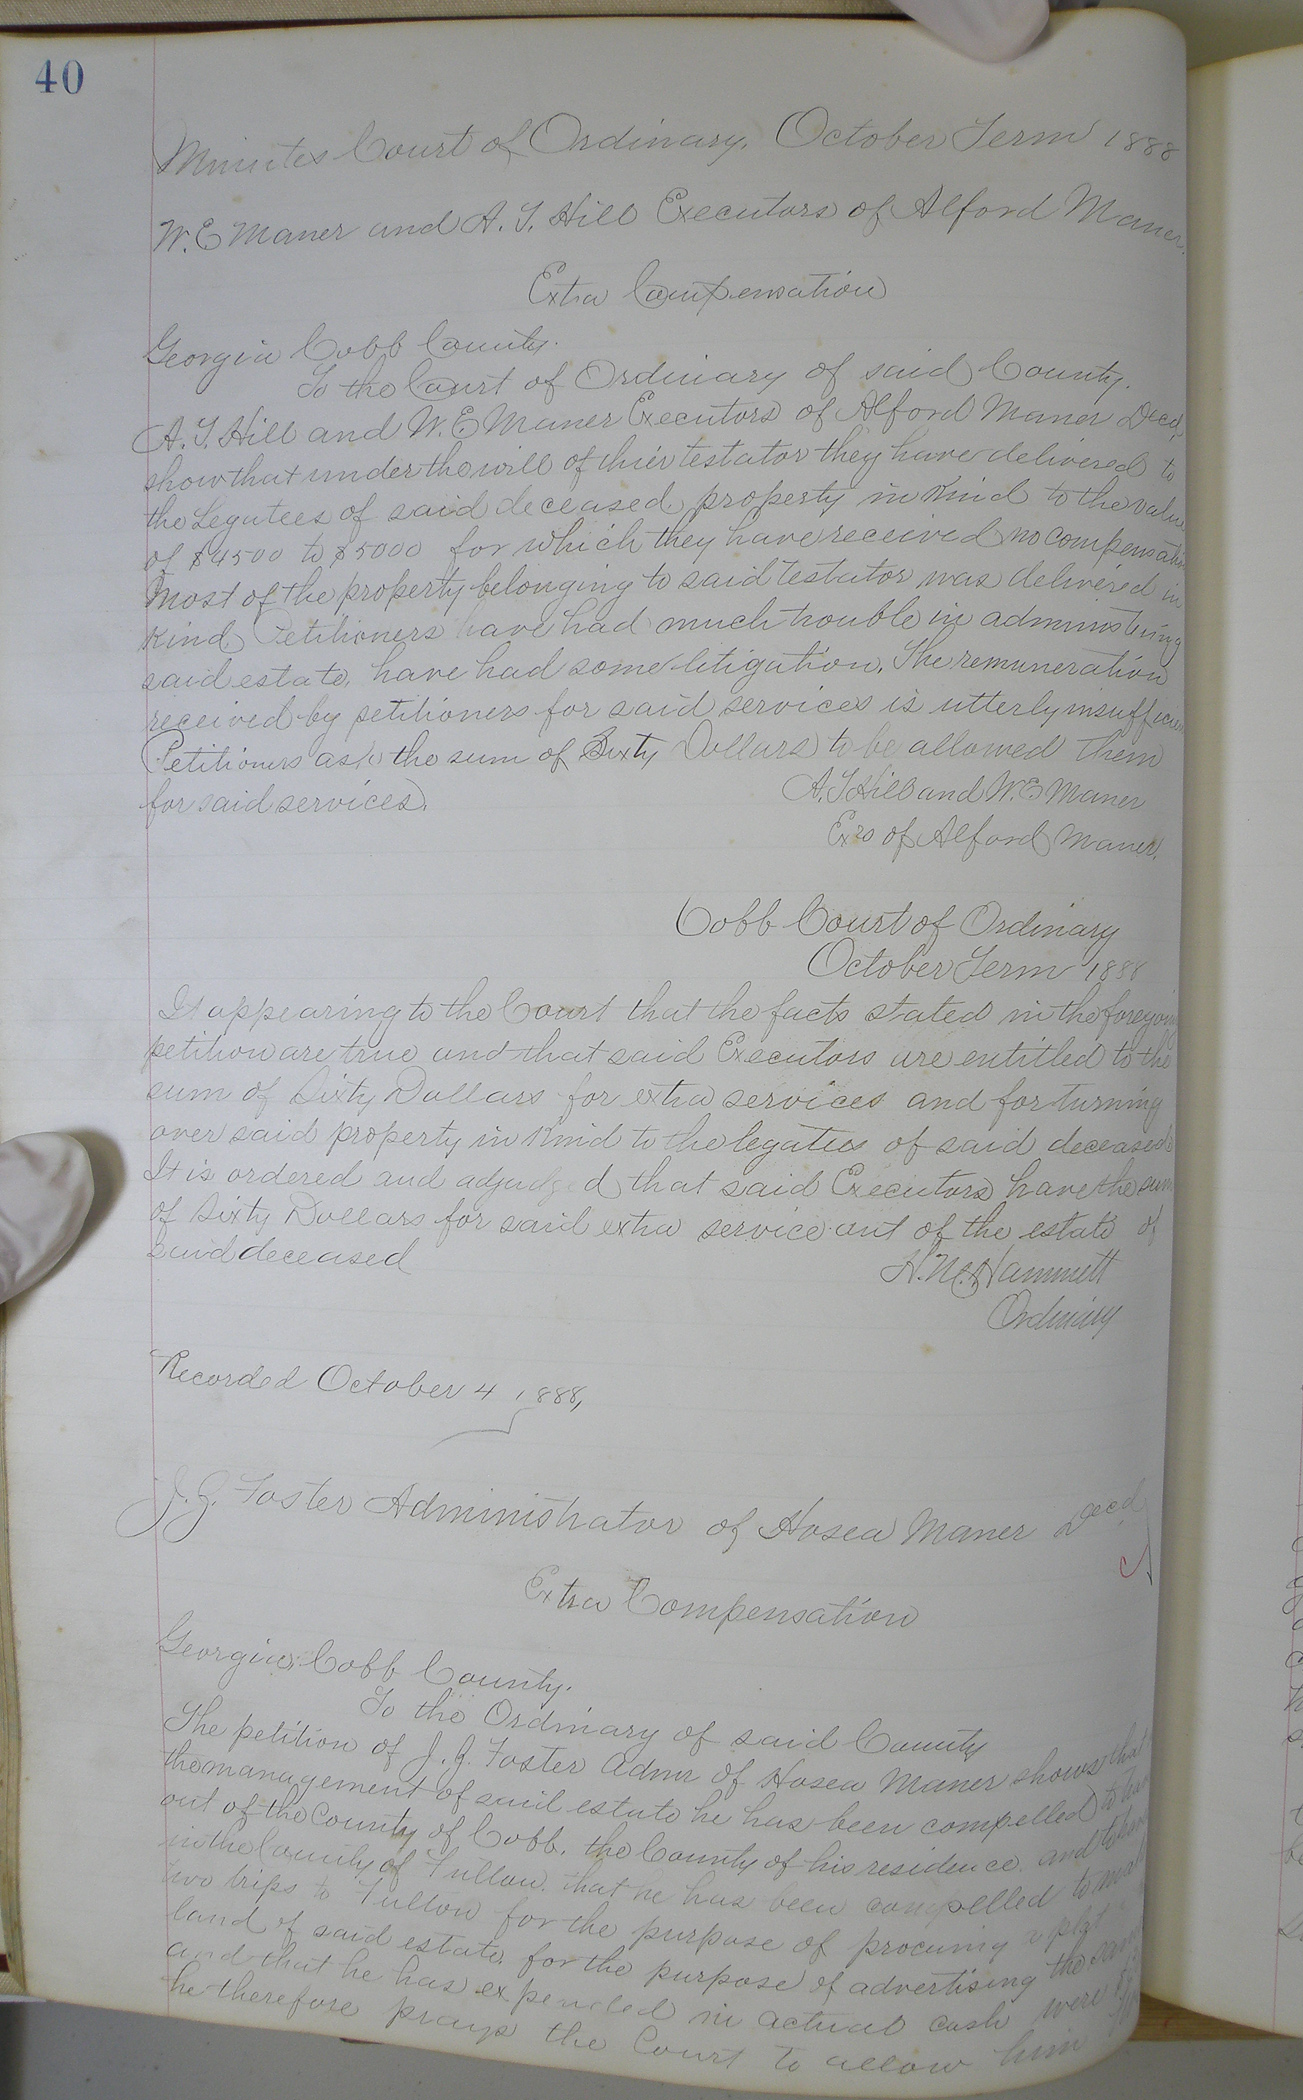 40
Minutes Court of Ordinary. October Term 1888
W. E Maner and A. T. Hill Executors of Alford Maner.
Extra Compensation
Georgia Cobb County.
To the Court of Ordinary of said County.
A. T. Hill and W. E Maner Executors of Alford Maner Decd,
show that under the will of thier testator they have delivered to
the Legatees of said deceased property in Kind to the value
of $4500 to $5000 for which they have received no compensation
Most of the property belonging to said Testator was delivered in
Kind. Petitioners have had much trouble in administering
said estate, have had some litigation. The remuneration
received by petitioners for said services is utterly insufficient
Petitioners ask the sum of Sixty Dollars to be allowed them
for said services.
A. T Hill and W. E Maner
Exrs of Alford Maner.
Cobb Court of Ordinary
October Term 1888
It appearing to the Court that the facts stated in the foregoing
petition are true and that said Executors are entitled to the
sum of Sixty Dollars for extra services and for turning
over said property in Kind to the legatees of said deceased
It is ordered and adjudged that said Executors have the sum
of Sixty Dollars for said extra service out of the estate of
said deceased
H. M. Hammett
Ordinary
Recorded October 4 1888,
J. G. Foster Administrator of Hosea Maner Decd
Extra Compensation
Georgia, Cobb County.
To the Ordinary of said County
The petition of J. G. Foster Admr of Hosea Maner shows that
the management of said estate he has been compelled to
out of the County of Cobb, the County of his residence. and to
in the County of Fulton. that he has been compelled to make
two trips to Fulton for the purpose of procuring a plat
land of said estate, for the purpose of advertising the same
and that he has expended in actual cash
he therefore prays the Court to allow him